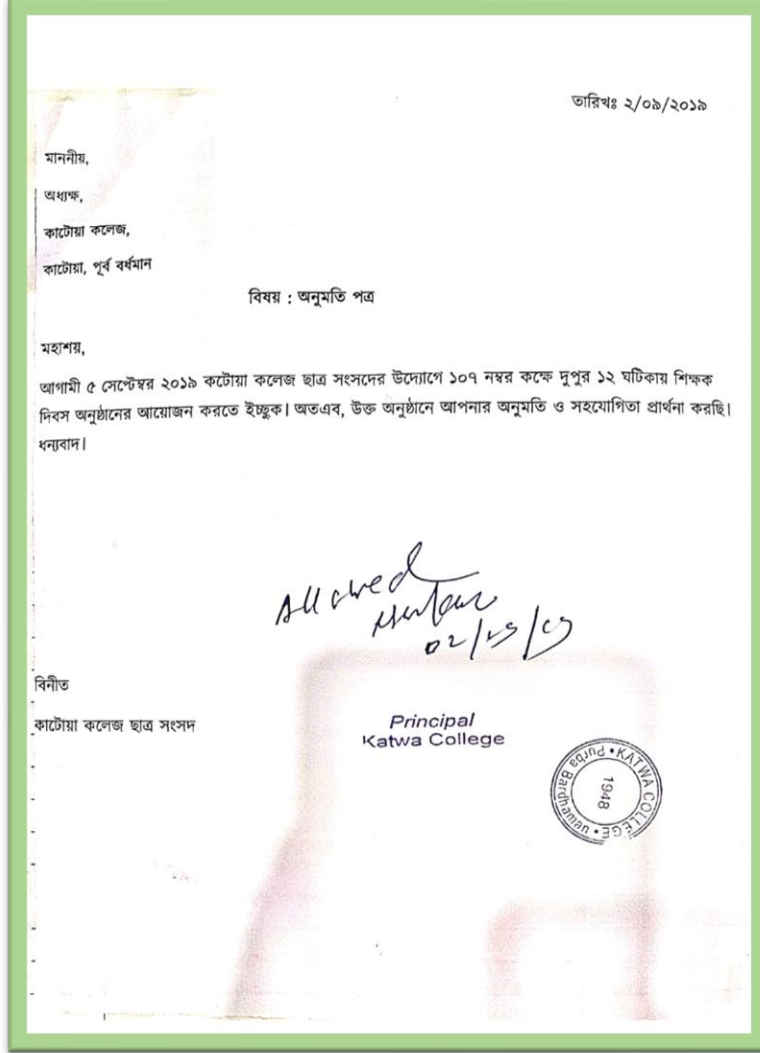 তারিখঃ ২/০৯/২০১৯
মাননীয়,
অধ্যক্ষ,
কাটোয়া কলেজ,
কাটোয়া, পূর্ব বর্ধমান
বিষয় : অনুমতি পত্র
মহাশয়,
আগামী ৫ সেপ্টেম্বর ২০১৯ কটোয়া কলেজ ছাত্র সংসদের উদ্যোগে ১০৭ নম্বর কক্ষে দুপুর ১২ ঘটিকায় শিক্ষক
দিবস অনুষ্ঠানের আয়োজন করতে ইচ্ছুক। অতএব, উক্ত অনুষ্ঠানে আপনার অনুমতি ও সহযোগিতা প্রার্থনা করছি।
ধন্যবাদ।
Allowed
বিনীত
কাটোয়া কলেজ ছাত্র সংসদ
Principal
Katwa College
KATWA COLLEGE • Purba Bardhaman •
1948